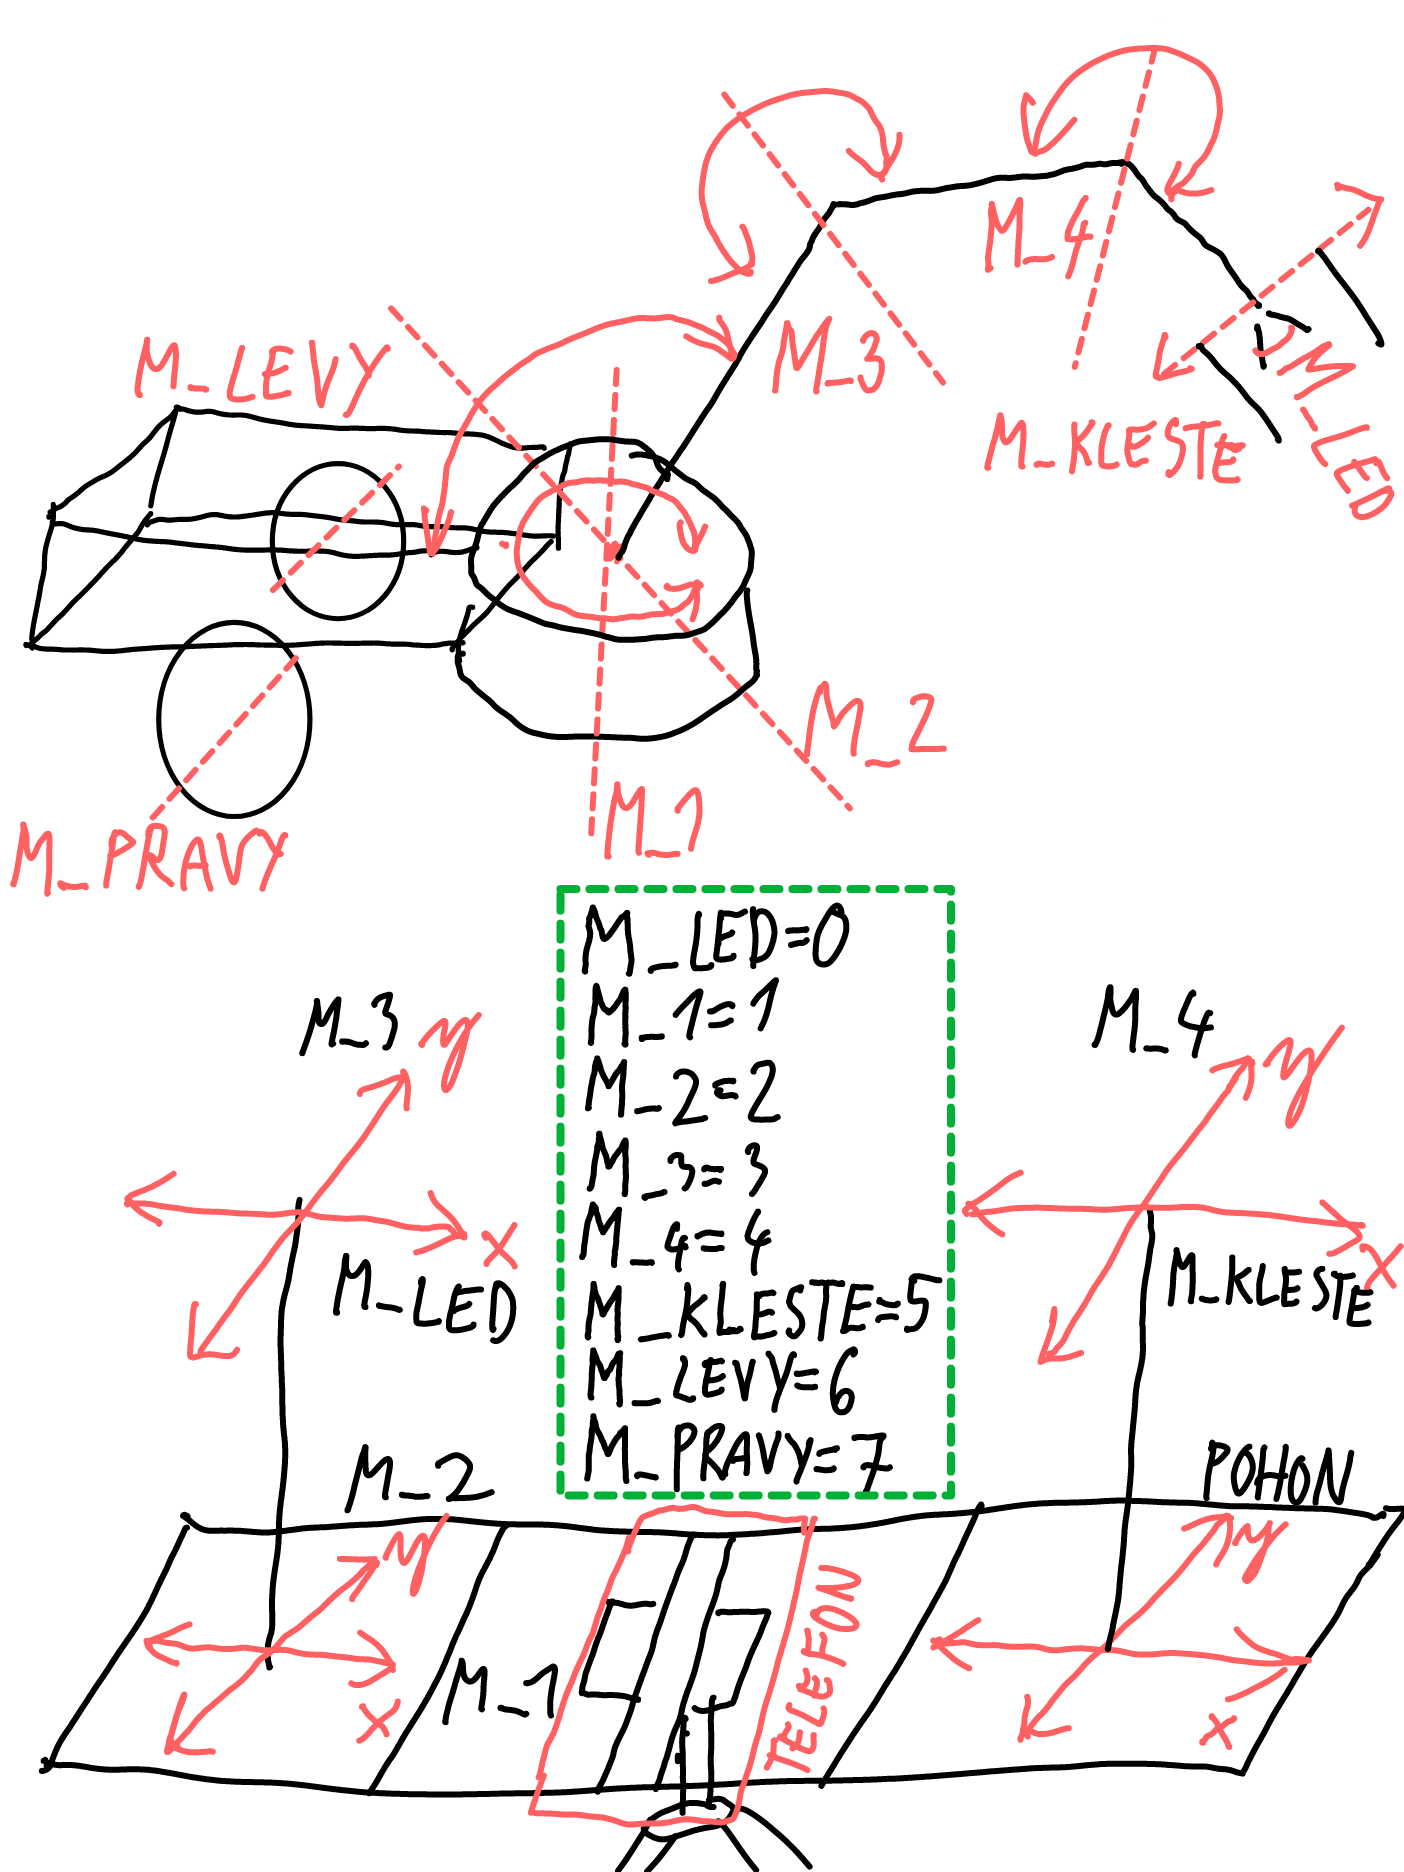 M_4
M_3
M_LEVY
M_LED
M_KLESTE
M_2
M_1
M_PRAVY
M_LED=0
M_1=1
M_2=2
M_3=3
M_4=4
M_KLESTE=5
M_LEVY=6
M_PRAVY=7
M_3
y
x
M_LED
M_4
y
x
M_KLESTE
M_2
y
x
M_1
TELEFON
POHON
y
x